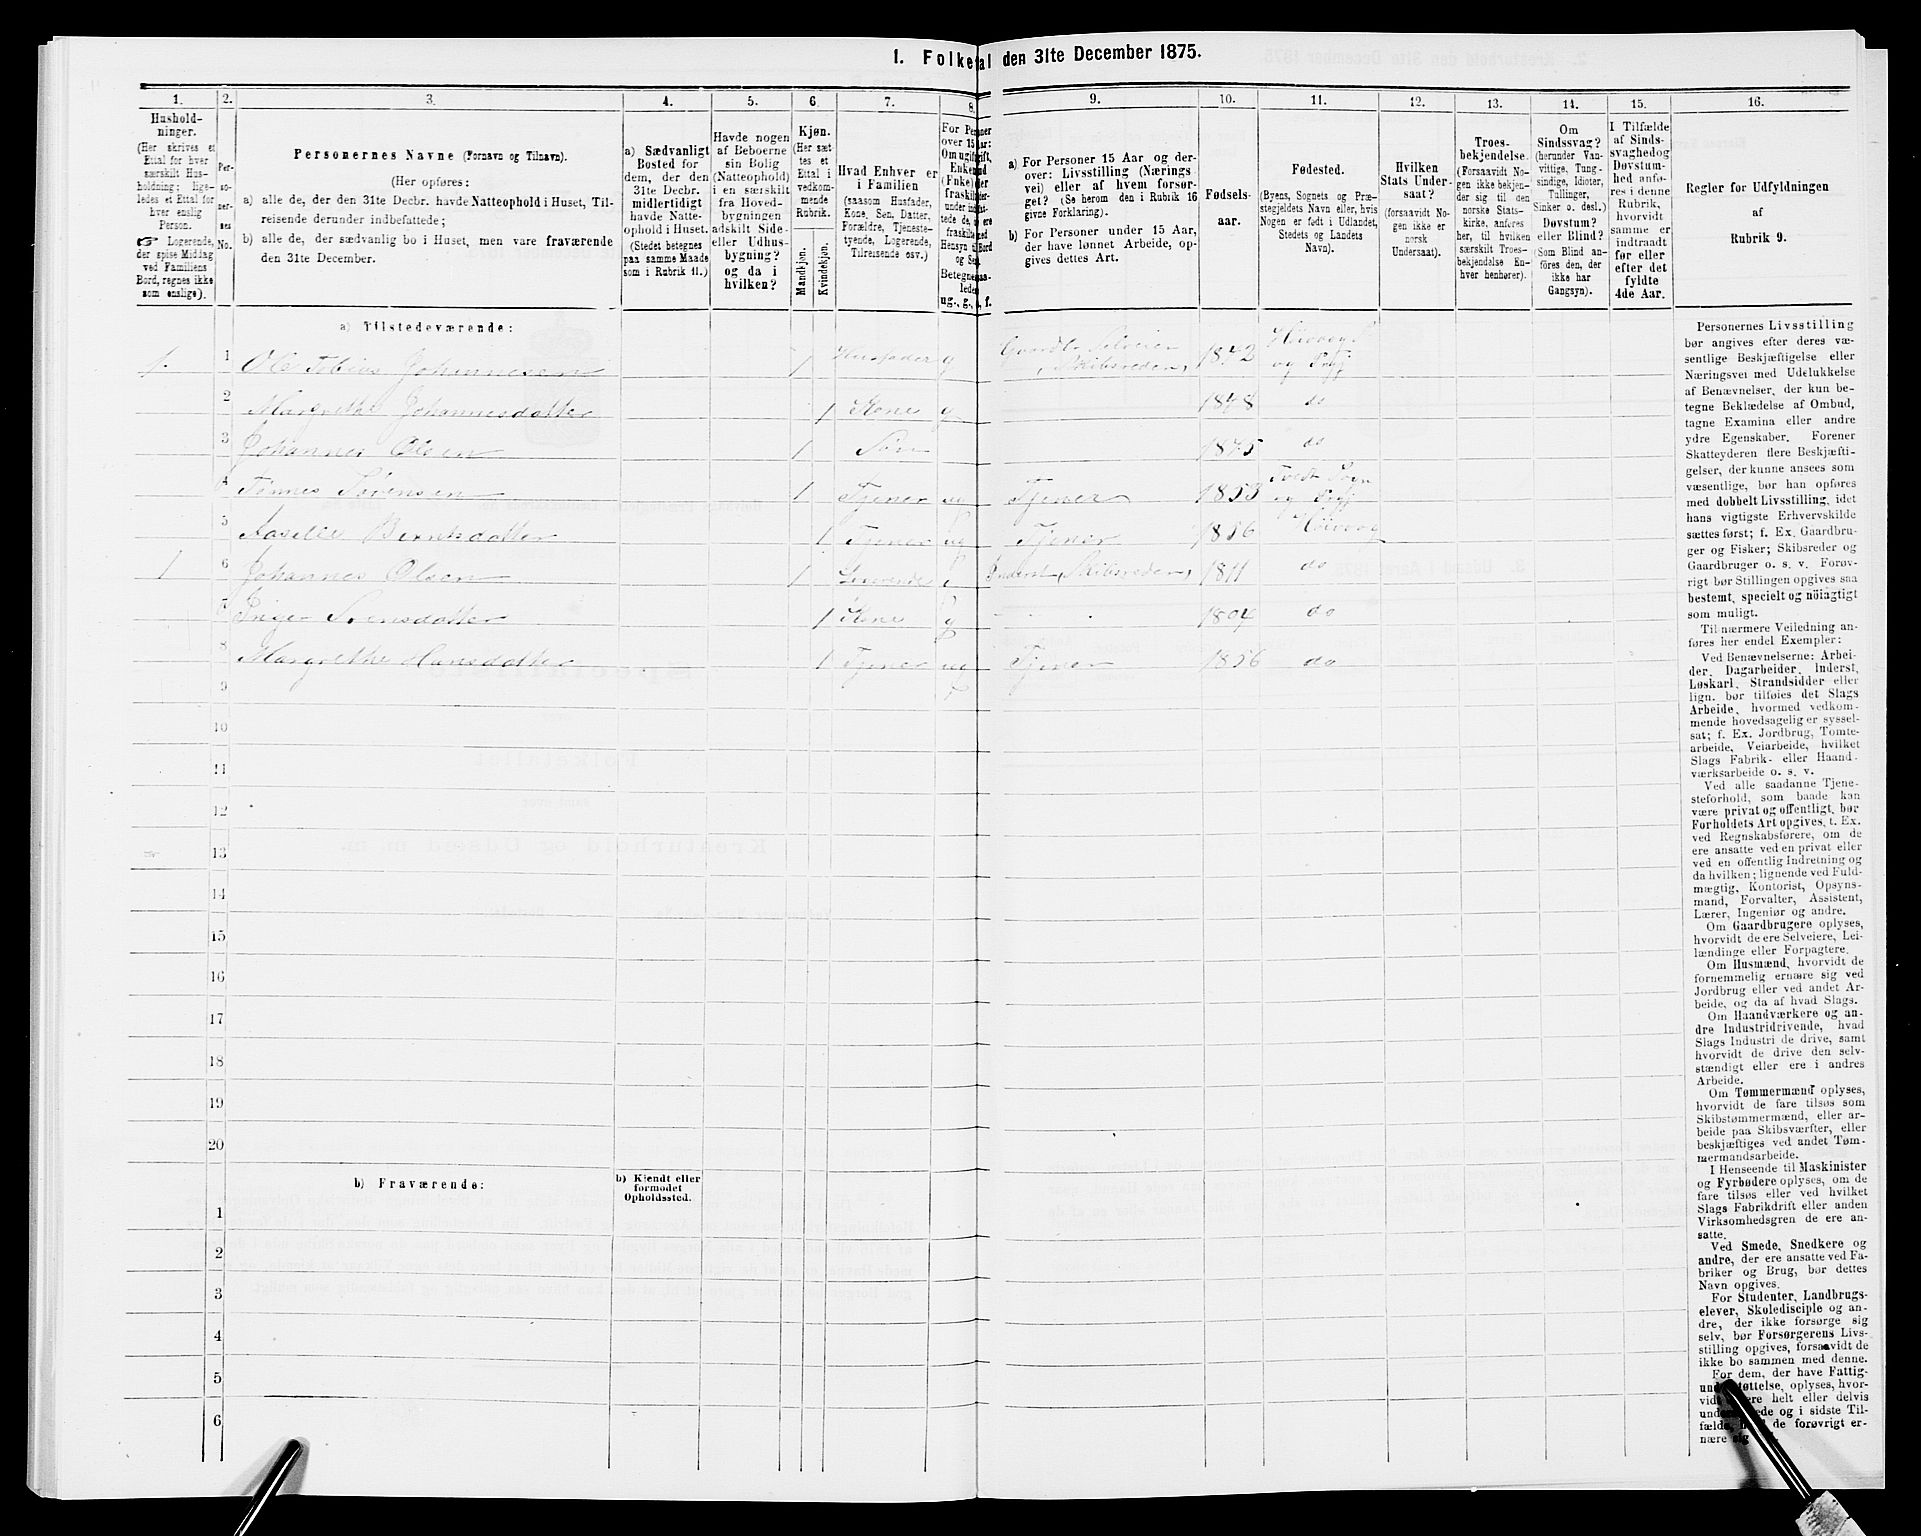 1. Folketal den 31te December 1875.
1. 2. 3. 4. 5. 6. 7. 8. 9. 10. 11. 12. 13. 14. 15. 16.
Hushold-
ninger.
(Her skrives et
Ettal for hver
særskilt Hus-
holdning; lige-
ledes et Ettal for
hver enslig
Person.
☞ Logerende,
der spise Middag
ved Familiens
Bord, regnes ikke
som enslige).
Per-
so-
ner-
nes
No.
Personernes Navne (Fornavn og Tilnavn).
(Her opføres:
a) alle de, der den 31te Decbr. havde Natteophold i Huset, Til-
reisende derunder indbefattede;
b) alle de, der sædvanlig bo i Huset, men vare fraværende
den 31te December.
a) Sædvanligt
Bosted for
dem, der den
31te Decbr.
midlertidigt
havde Natte-
ophold i Huset.
(Stedet betegnes
paa samme Maade
som i Rubrik 11.)
Havde nogen
af Beboerne
sin Bolig
(Natteophold)
i en særskilt
fra Hoved-
bygningen
adskilt Side-
eller Udhus-
bygning?
og da i
hvilken?
Kjøn.
(Her sæt-
tes et
Ettal i
vedkom-
mende
Rubrik.
Mandkjøn.
Kvindekjøn.
Hvad Enhver er
i Familien
(saasom Husfader,
Kone, Søn, Datter,
Forældre, Tjeneste-
tyende, Logerende,
Tilreisende osv.)
For Personer
over 15 Aar:
Om ugift, gift,
ug., g., f.
a) For Personer 15 Aar og der-
over: Livsstilling (Nærings-
vei) eller af hvem forsør-
get? (Se herom den i Rubrik 16
givne Forklaring).
b) For Personer under 15 Aar,
der have lønnet Arbeide, op-
gives dettes Art.
Fødsels-
aar.
Fødested.
(Byens, Sognets og Præ-
stegjeldets Navn eller, hvis
Nogen er født i Udlandet,
Stedets og Landets
Navn).
Hvilken
Stats Under-
saat?
(forsaavidt No-
gen ikke er
norsk
Undersaat).
Troes-
bekjendelse.
(Forsaavidt No-
gen ikke bekjen-
der sig til den
norske Stats-
kirke, anføres
her, til hvilken
særskilt Troes-
bekjendelse En-
hver henhører).
Om
Sindssvag?
(herunder Van-
vittige, Tung-
sindige, Idioter,
Tullinger,
Sinker o. desl.)
Døvstum?
eller Blind?
(Som Blind an-
føres den, der
ikke har
Gangsyn).
I Tilfælde
af Sinds-
svaghed og
Døvstum-
hed anfø-
res i denne
Rubrik,
hvorvidt
samme er
indtraadt
før eller
efter det
fyldte
4de Aar.
Regler for Udfyldningen
af
Rubrik 9.
a) Tilstedeværende:
1. 1 Ole Tobias Johannesen 1 Husfader g Gaardbr. Selveier, Skibsreder 1842 Høivaag S. og Prgj.
2 Margrethe Johannesdatter 1 Kone g 1848 do
3 Johannes Olsen 1 Søn 1875 do
4 Tønnes Sørensen 1 Tjener ug Tjener 1853 Tvedt Sogn og Prgj.
5 Berntsdatter 1 Tjener ug Tjener 1856 Høivaag
1 6 Johannes Olsen 1 g Inderst, Skibsreder 1811 do
7 Inger Svensdatter 1 Kone g 1804 do
8 Margrethe Hansdatter 1 Tjener ug Tjener 1856 do
9
10
11
12
13
14
15
16
17
18
19
20
b) Fraværende:
b) Kjendt eller
formodet
Opholdssted.
1
2
3
4
5
6
Personernes Livsstilling
bør angives efter deres væ-
sentlige Beskjæftigelse eller
Næringsvei med Udelukkelse
af Benævnelser, der kun be-
tegne Beklædelse af Ombud,
tagne Examina eller andre
ydre Egenskaber. Forener
Skatteyderen flere Beskjæfti-
gelser, der kunne ansees som
væsentlige, bør han opføres
med dobbelt Livsstilling, idet
hans vigtigste Erhvervskilde
sættes først; f. Ex. Gaardbru-
ger og Fisker; Skibsreder og
Gaardbruger o. s. v. Forøv-
rigt bør Stillingen opgives saa
bestemt, specielt og nöiagtigt
som muligt.
Til nærmere Veiledning an-
føres her endel Exempler:
Ved Benævnelserne: Arbei-
der, Dagarbeider, Inderst,
Løskarl, Strandsidder eller
lign. bør tilføies det Slags
Arbeide, hvormed vedkom-
mende hovedsagelig er syssel-
sat; f. Ex. Jordbrug, Tomte-
arbeide, Veiarbeide, hvilket
Slags Fabrik- eller Haand-
værksarbeide o. s. v.
Ved alle saadanne Tjene-
steforhold, som baade kan
være privat og offentligt, bør
Forholdets Art opgives, t. Ex.
ved Regnskabsførere, om de
ere ansatte ved en privat eller
ved en offentlig Indretning og
da hvilken; lignende ved Fuld-
mægtig, Kontorist, Opsyns-
mand, Forvalter, Assistent,
Lærer, Ingeniør og andre.
Om Gaardbrugere oplyses,
hvorvidt de ere Selveiere, Lei-
lændinge eller Forpagtere.
Om Husmænd, hvorvidt de
fornemmelig ernære sig ved
Jordbrug eller ved andet Ar-
beide, og da af hvad Slags.
Om Haandværkere og an-
dre Industridrivende, hvad
Slags Industri de drive, samt
hvorvidt de drive den selv-
stændigt eller ere i andres
Arbeide.
Om Tømmermænd oplyses,
hvorvidt de fare tilsøs som
Skibstømmermænd, eller ar-
beide paa Skibsværfter, eller
beskjæftiges ved andet Tøm-
mermandsarbeide.
I Henseende til Maskinister
og Fyrbødere oplyses, om de
fare tilsøs eller ved hvilket
Slags Fabrikdrift eller anden
Virksomhedsgren de ere an-
satte.
Ved Smede, Snedkere og
andre, der ere ansatte ved Fa-
briker og Brug, bør dettes
Navn opgives.
For Studenter, Landbrugs-
elever, Skoledisciple og an-
dre, der ikke forsørge sig
selv, bør Forsørgerens Livs-
stilling opgives, forsaavidt de
ikke bo sammen med denne.
For dem, der have Fattig-
understøttelse, oplyses, hvor-
vidt de ere helt eller delvis
understøttede og i sidste Til-
fælde, hvad de forøvrigt er-
nære sig